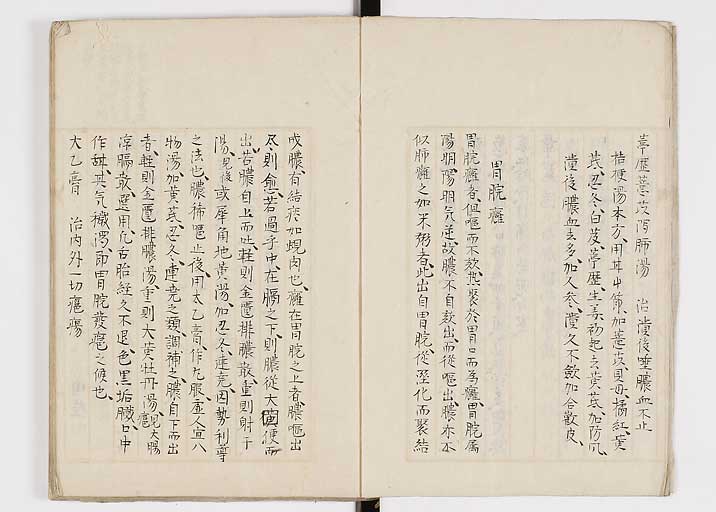 葶藶薏苡瀉肺湯　治潰後唾膿血不止
桔梗湯本方、用其中節、加薏苡、貝母、橘紅、黄
芪、忍冬、白芨、葶藶、生姜、初起去黄芪、加防风
潰後膿血去多、加人参、潰久不斂、加合歓皮、
胃脘癰
胃脘癰者、但嘔而不欬、其聚於胃口而為癰、胃脘属
陽明、陽明気逆、故膿不自欬出、而從嘔出、膿亦不
似肺癰之如米粥者、此出自胃脘、從湿化而聚結
成膿、有結痰如蜆肉也、癰在胃脘之上者、膿嘔出
尽則愈、若過乎中、在膈之下、則膿從大便而
出、若膿自上而吐、軽則金匱排膿散、重則射干
湯、見後或犀角地黄湯、加忍冬、連尭、因勢利導
之法也、膿稀嘔止後、用太乙膏作丸服、虚人宜八
物湯、加黄芪、忍冬、連尭之類、調補之、膿自下而出
者、軽則金匱排膿湯、重則大黄牡丹湯、見大腸癰
淳膈散選用、凡舌胎経久不退、色黒垢膩、口中
作甜、其気穢濁、即胃脘発癰之候也、
太乙膏　治内外一切癰瘍